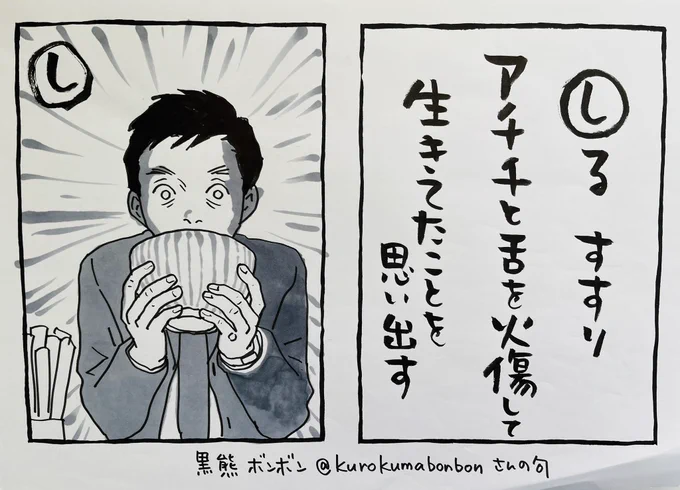 し
しる すすり
アチチと舌を火傷して
生きてたことを
思い出す
黒熊 ボンボン @kurokumabonbon さんの句